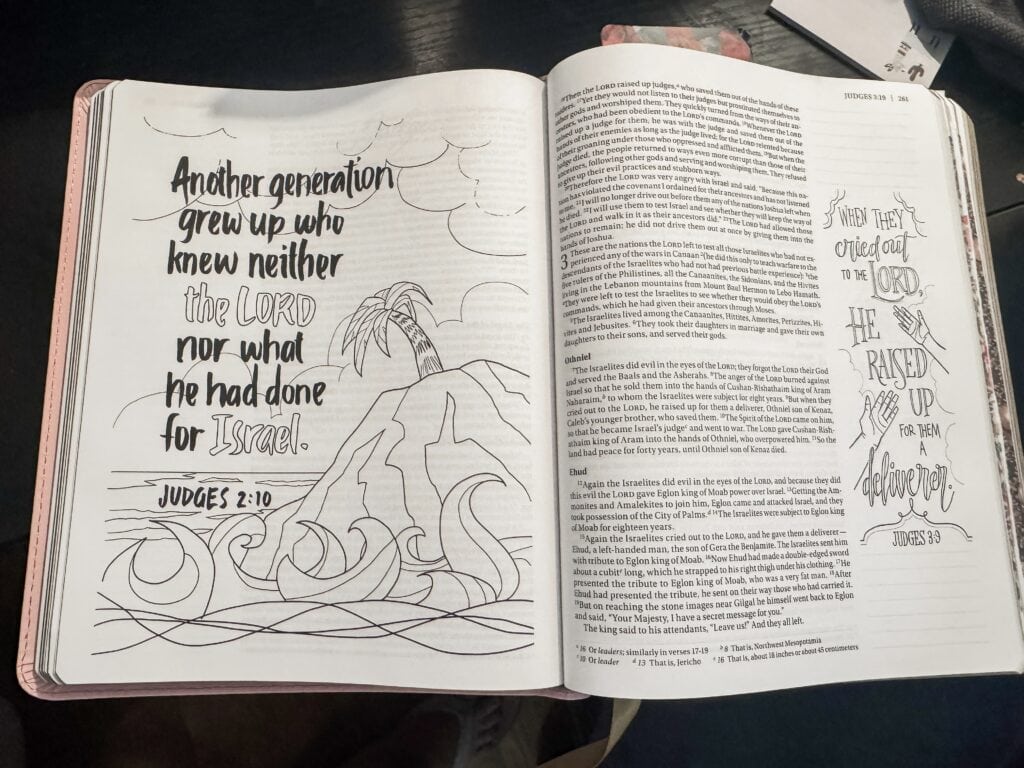 Another generation
grew up who
knew neither
the LORD
nor what
he had done
for Israel.
JUDGES 2:10
JUDGES 3:19 | 261
16Then the LORD raised up judges,a who saved them out of the hands of these
raiders. 17Yet they would not listen to their judges but prostituted themselves to
other gods and worshiped them. They quickly turned from the ways of their an-
cestors, who had been obedient to the LORD's commands. 18Whenever the LORD
raised up a judge for them, he was with the judge and saved them out of the
hands of their enemies as long as the judge lived; for the LORD relented because
of their groaning under those who oppressed and afflicted them. 19But when the
judge died, the people returned to ways even more corrupt than those of their
ancestors, following other gods and serving and worshiping them. They refused
to give up their evil practices and stubborn ways.
20Therefore the LORD was very angry with Israel and said, "Because this na-
tion has violated the covenant I ordained for their ancestors and has not listened
to me, 21I will no longer drive out before them any of the nations Joshua left when
he died. 22I will use them to test Israel and see whether they will keep the way of
the LORD and walk in it as their ancestors did." 23The LORD had allowed those
nations to remain; he did not drive them out at once by giving them into the
hands of Joshua.
3 These are the nations the LORD left to test all those Israelites who had not ex-
perienced any of the wars in Canaan 2(he did this only to teach warfare to the
descendants of the Israelites who had not had previous battle experience): 3the
five rulers of the Philistines, all the Canaanites, the Sidonians, and the Hivites
living in the Lebanon mountains from Mount Baal Hermon to Lebo Hamath.
4They were left to test the Israelites to see whether they would obey the LORD's
commands, which he had given their ancestors through Moses.
5The Israelites lived among the Canaanites, Hittites, Amorites, Perizzites, Hi-
vites and Jebusites. 6They took their daughters in marriage and gave their own
daughters to their sons, and served their gods.
Othniel
7The Israelites did evil in the eyes of the LORD; they forgot the LORD their God
and served the Baals and the Asherahs. 8The anger of the LORD burned against
Israel so that he sold them into the hands of Cushan-Rishathaim king of Aram
Naharaim,b to whom the Israelites were subject for eight years. 9But when they
cried out to the LORD, he raised up for them a deliverer, Othniel son of Kenaz,
Caleb's younger brother, who saved them. 10The Spirit of the LORD came on him,
so that he became Israel's judgec and went to war. The LORD gave Cushan-Rish-
athaim king of Aram into the hands of Othniel, who overpowered him. 11So the
land had peace for forty years, until Othniel son of Kenaz died.
Ehud
12Again the Israelites did evil in the eyes of the LORD, and because they did
this evil the LORD gave Eglon king of Moab power over Israel. 13Getting the Am-
monites and Amalekites to join him, Eglon came and attacked Israel, and they
took possession of the City of Palms.d 14The Israelites were subject to Eglon king
of Moab for eighteen years.
15Again the Israelites cried out to the LORD, and he gave them a deliverer—
Ehud, a left-handed man, the son of Gera the Benjamite. The Israelites sent him
with tribute to Eglon king of Moab. 16Now Ehud had made a double-edged sword
about a cubite long, which he strapped to his right thigh under his clothing. 17He
presented the tribute to Eglon king of Moab, who was a very fat man. 18After
Ehud had presented the tribute, he sent on their way those who had carried it.
19But on reaching the stone images near Gilgal he himself went back to Eglon
and said, "Your Majesty, I have a secret message for you."
The king said to his attendants, "Leave us!" And they all left.
a 16 Or leaders; similarly in verses 17-19 b 8 That is, Northwest Mesopotamia
c 10 Or leader d 13 That is, Jericho e 16 That is, about 18 inches or about 45 centimeters
WHEN THEY
cried out
TO THE LORD,
HE
RAISED
UP
FOR THEM
A
deliverer.
JUDGES 3:9